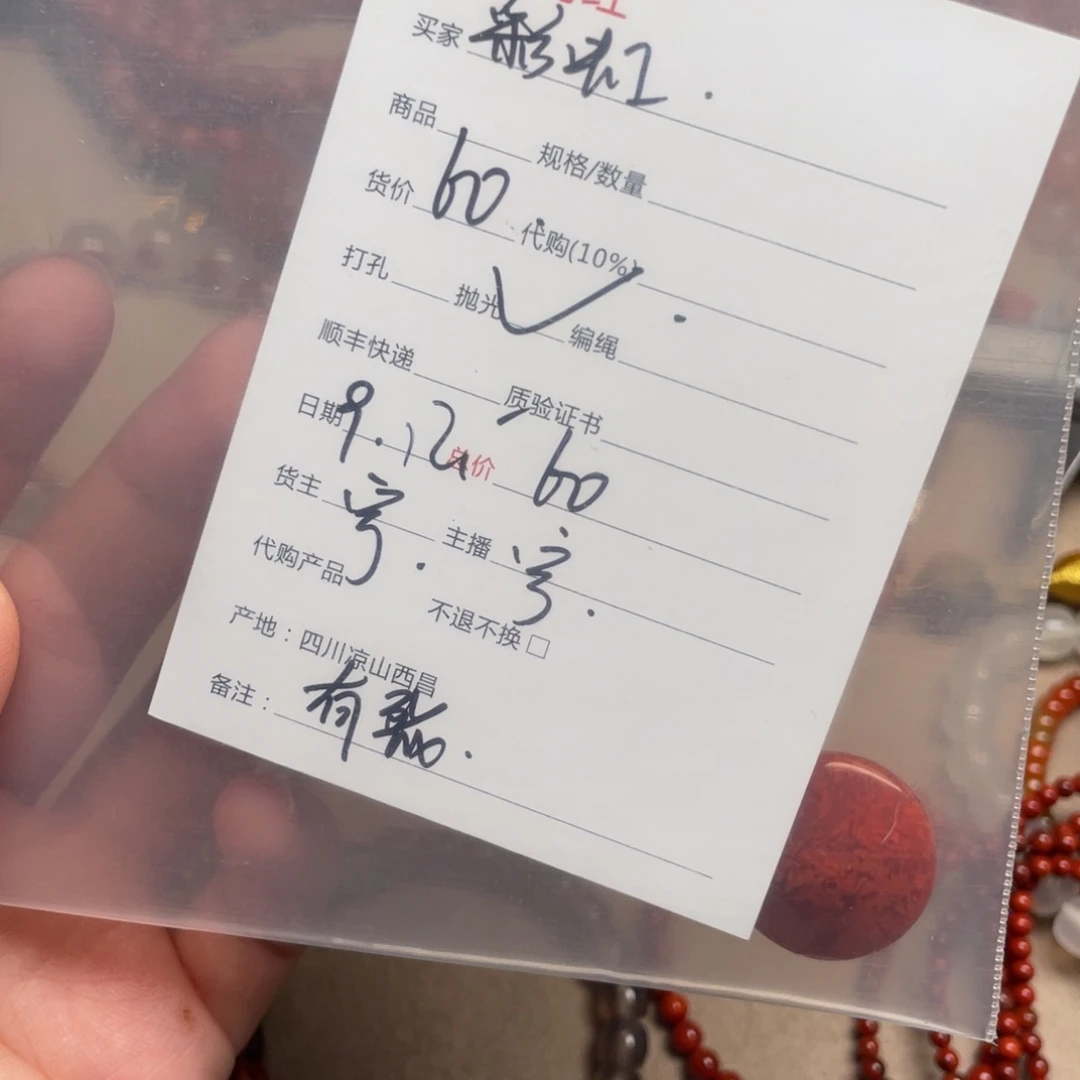 红
买家 彩虹.
商品 规格/数量
货价 60 代购(10%)
打孔 抛光 ✓ 编绳
顺丰快递 质验证书
日期 9.12 总价 60
货主 宁. 主播 宁.
代购产品 不退不换 □
产地：四川凉山西昌
备注： 有裂.